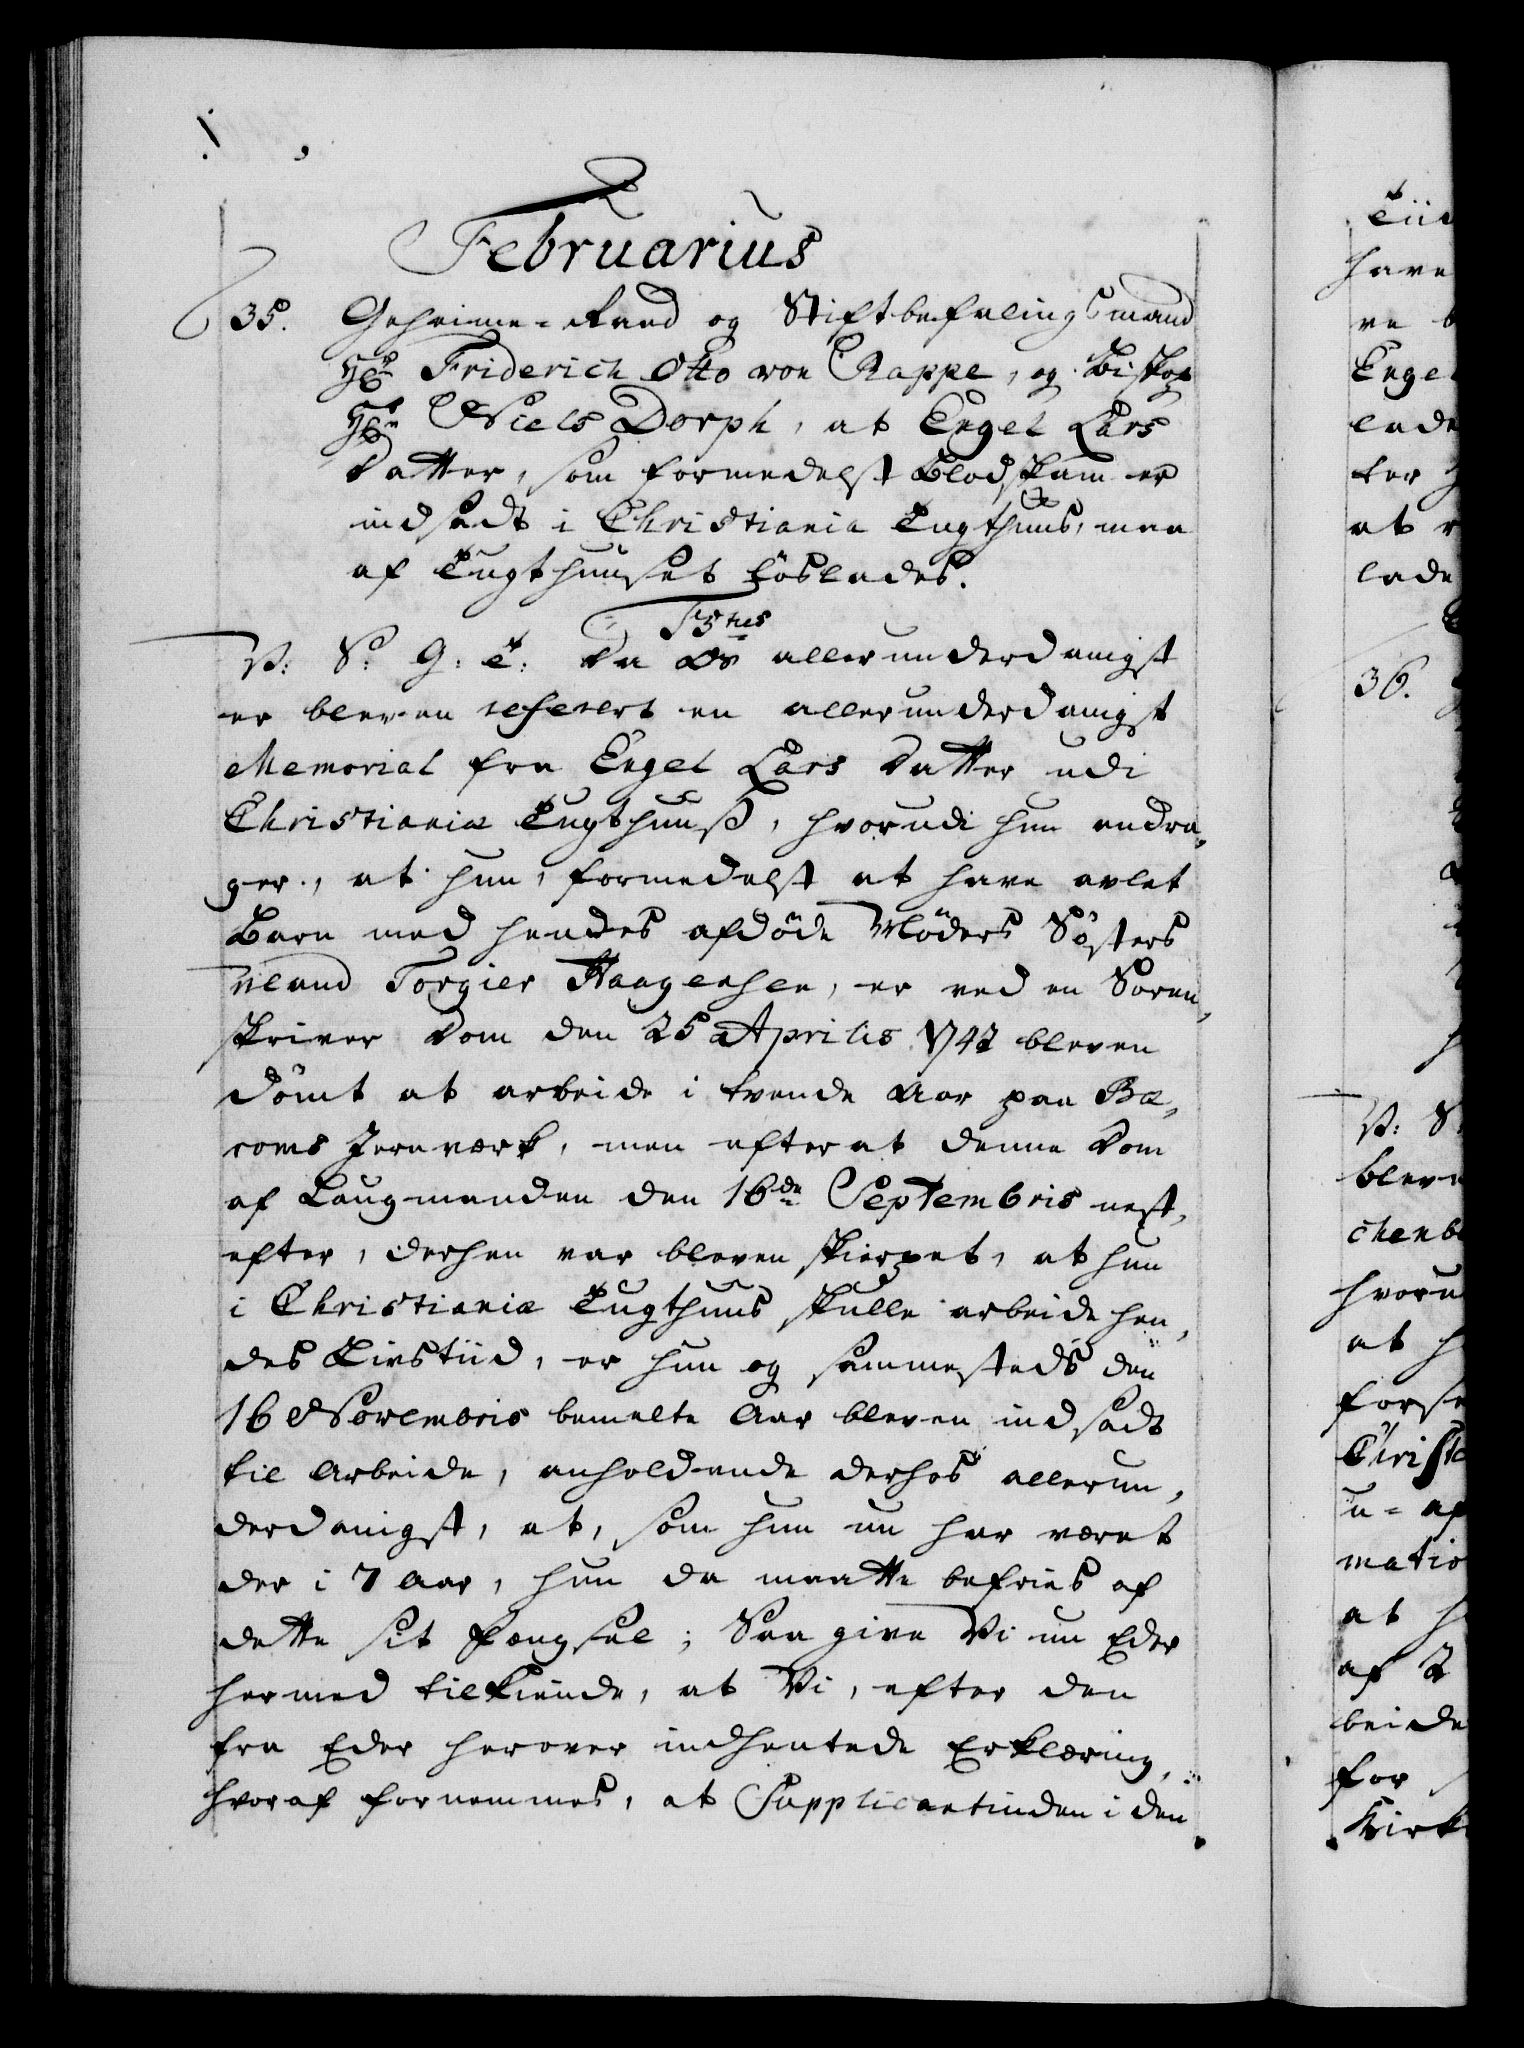 Februarius
35. Geheime-Raad og Stiftbefalingsmand
Hr. Friderich Otto von Rappe, og Biskop
Hr. Niels Dorph, at Engel Lars
Datter, som formedelst Blodskam er
indsadt i Christiania Tugthuus, maa
af Tugthuuset løslades.
V: S: G: T: Da Os allerunderdanigst
er bleven refereret en allerunderdanigst
Memorial fra Engel Lars Datter udi
Christianiæ Tugthuuß, hvorudi hun andra,
ger, at hun, formedelst at have avlet
Barn med hendes afdøde Moders Søsters
Mand Torgier Haagensen, er ved en Soren,
skriver Dom den 25 Aprilis 1742 bleven
dømt at arbeide i tvende Aar paa Bæ,
rems Jernværk, men efterat denne Dom
af Laugmanden den 16de Septembris nest,
efter, derhen var bleven skierpet, at hun
i Christianiæ Tugthuus skulle arbeide hen,
des Livstiid, er hun og sammesteds den
16 Novembris bemelte Aar bleven indsadt
til Arbeide, anholdende derhos allerun,
derdanigst, at, som hun nu har været
der i 7 Aar, hun da maatte befries af
dette sit Fængsel; Saa give Vi nu Eder
hermed tilkiende, at Vi, efter den
fra Eder herover indhentede Erklæring,
hvoraf fornemmes, at Supplicantinden i den
Tiid
have
Engel
lade
at
lade
36.
V: S:
bleve
hvoru
at
Christ
at
af 2
beide
for
Kirk